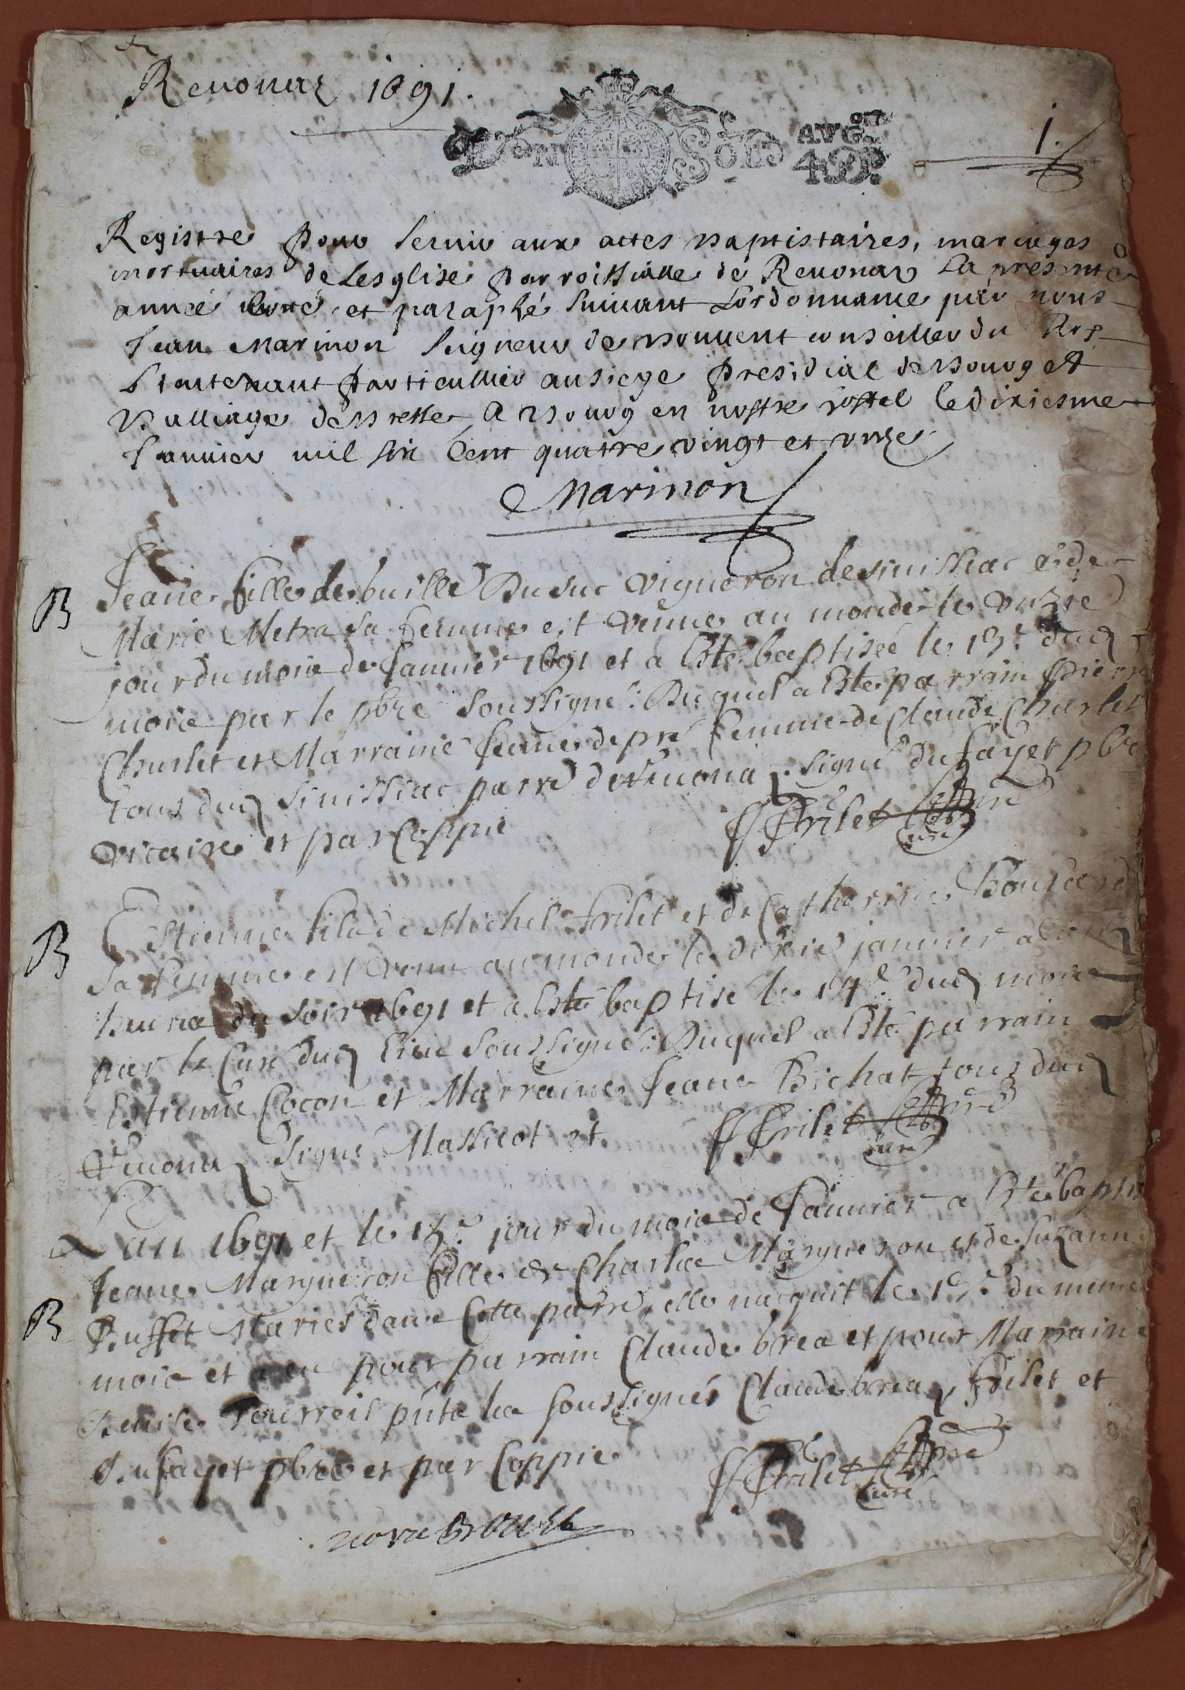 Reuonaz 1691.
AVG.on
SOLS
49D.
1.
Registre pour seruir aux actes baptistaires, mariages
mortuaires de lesglise parroissialle de Reuonaz la presente
année cotté et paraphé suiuant lordonnance par nous
Jean Marinon seigneur de conseiller du Roy
Lieutenant particullier au siege presidial de Bourg et
Balliage de Bresse A Bourg en nostre hostel le dixiesme
Januier mil six cent quatre vingt et vnze
Marinon
B
Jeane fille de Duluc vigneron de sinissiac et de
Marie Metra sa femme est venue au monde le vnzie
jour du mois de Januier 1691 et a esté baptisée le 13.e dud
mois par le pbre soussigné. Duquel a esté parrain Pierre
Charlet et Marraine Jeane depré femme de Claude Charlet
tous dud sinissiac parre de Reuonaz. signé dufayet pbre
vicaire et par Coppie
Frilet curé
B
Estienne fils de Michel frilet et de Catherine
sa femme est venu au monde le dixie januier
heures du soir 1691 et a esté baptisé le 14.e dud mois
par le Curé dud lieu soussigné. Duquel a esté parrain
Estienne Cocon et Marraine Jeane Bichat tous dud
Reuonaz signé Massicot et
Frilet curé
L an 1691 et le 15.e jour du mois de Januier a esté baptisé
Jeane Margueron fille de Charles Margueron et de Suzanne
B
Buffet Mariés dans Cette parre, elle nacquit le du meme
mois et a eu pour parrain Claude brea et pour Marraine
les soussignés Claude brea, frilet et
Dufayet pbre et par Coppie
Frilet curé